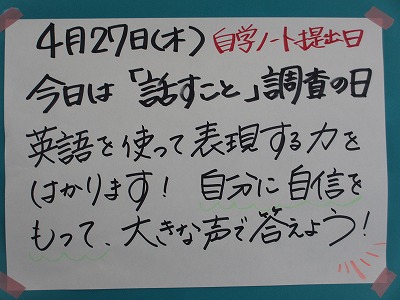 4月27日(木) 自学ノート提出日
今日は「話すこと」調査の日
英語を使って表現する力を
はかります! 自分に自信を
もって、大きな声で答えよう!